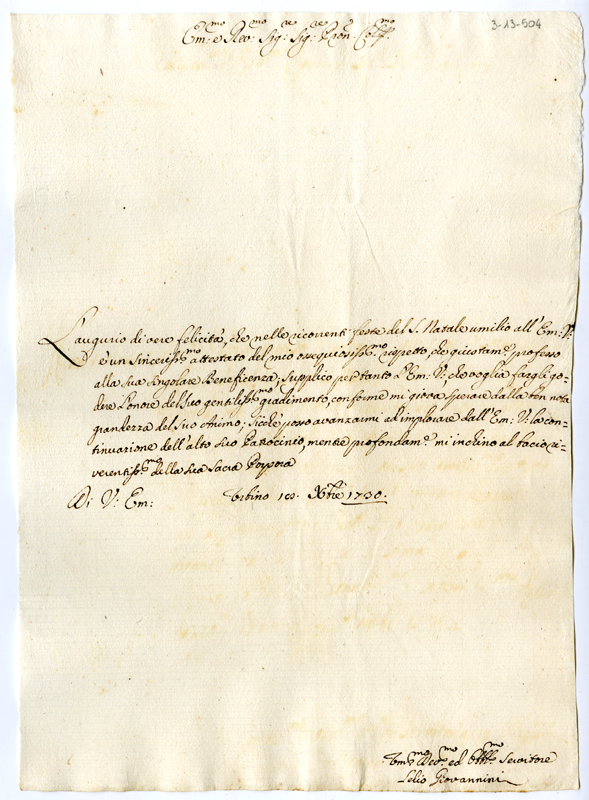 3-13-504
Em:mo e Rev:mo Sig:re Sig:re Pron: Col:mo
L'augurio di vere felicità, che nelle ricorrenti feste del S. Natale umilio all'Em: V:
è un sinceriss:mo attestato del mio ossequiosiss:mo rispetto, che giustam:e professo
alla Sua singolare Beneficenza; supplico per tanto l'Em: V: che voglia fargli go-
dere l'onore del suo gentiliss:mo gradimento, conforme mi giova sperare dalla ben nota
grandezza del suo Animo; sicché posso avanzarmi ad implorare dall'Em: V: la con-
tinuazione dell'alto suo Patrocinio, mentre profondam:e mi inchino al bacio ri-
verentiss:mo della sua Sacra Porpora
Di V: Em: Urbino Xbre 1730.
Um:mo Dev:mo ed Obb:mo Servitore
Lelio Giovannini